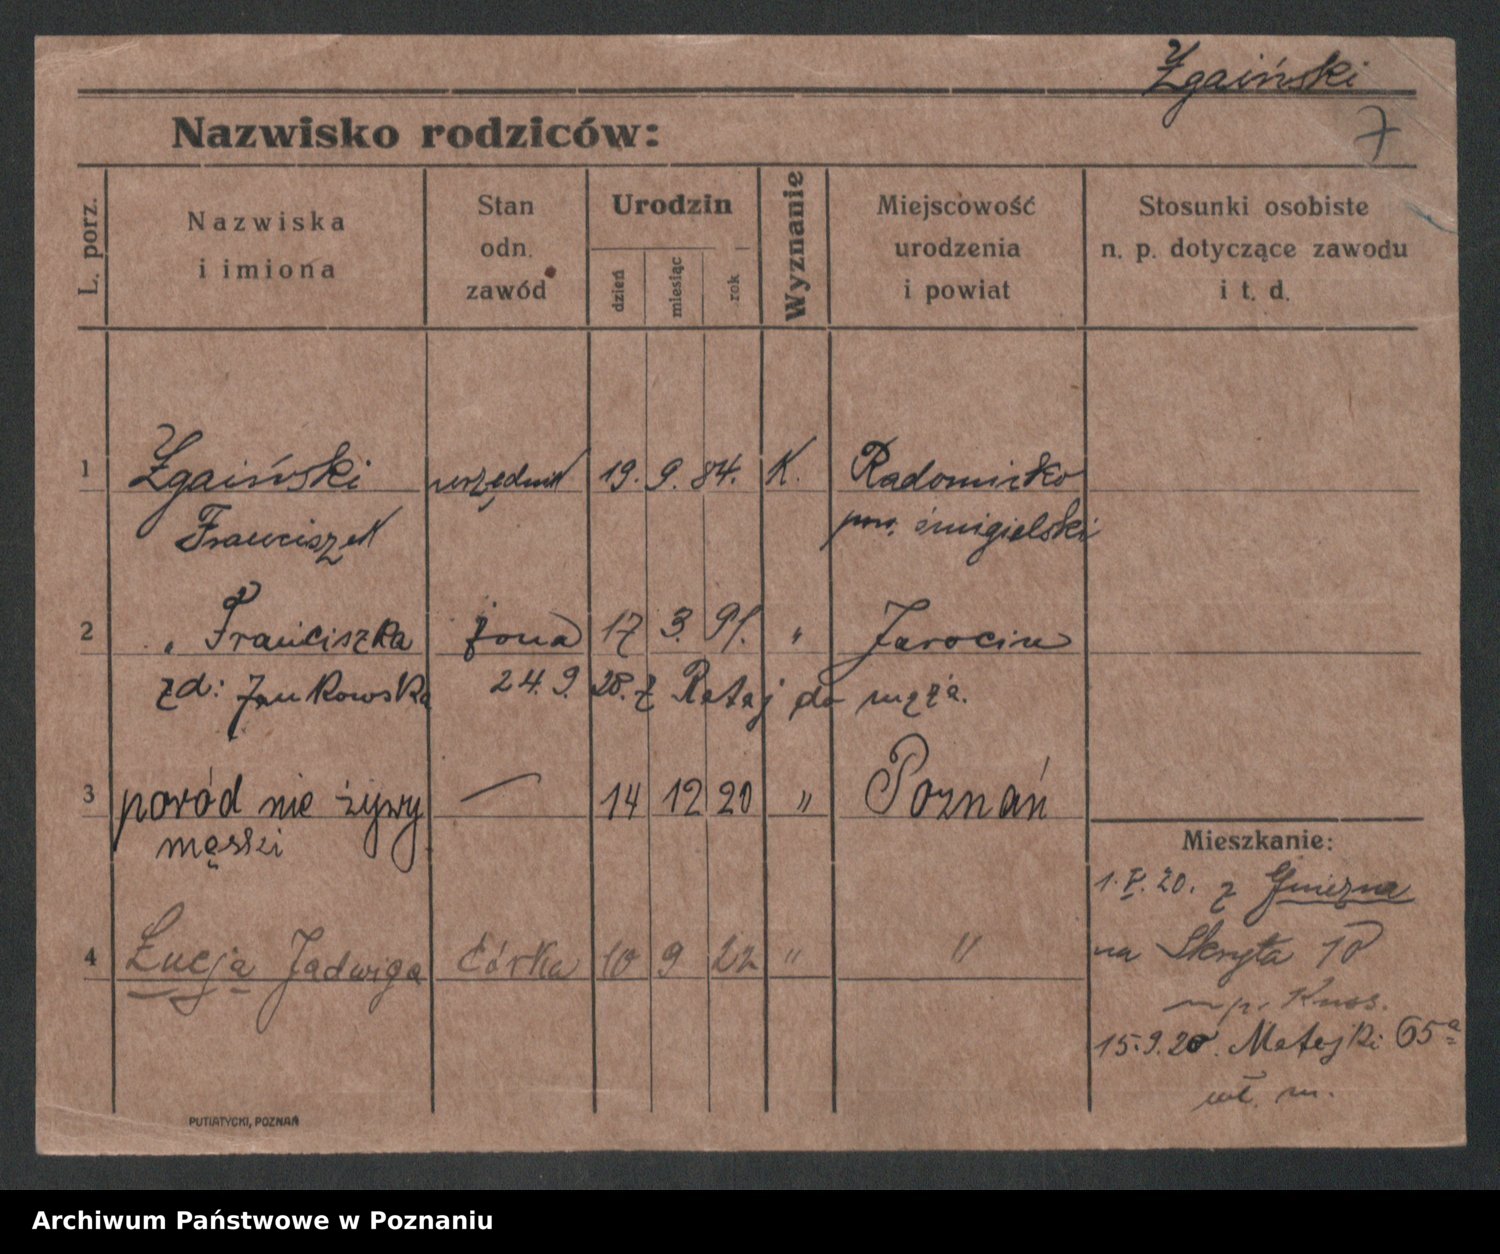 Zgaiński
7
Nazwisko rodziców:
L. porz.
Nazwiska
i imiona
Stan
odn.
zawód
Urodzin
dzień
miesiąc
rok
Wyznanie
Miejscowość
urodzenia
i powiat
Stosunki osobiste
n. p. dotyczące zawodu
i t. d.
1 Zgaiński urzędnik 19. 9. 84. K. Radomicko
Franciszek pow. śmigielski
2 " Franciszka żona 17 3. 91. " Jarocin
zd: Jankowska 24. 9. 28. z Rataj do męża.
3 poród nie żywy — 14 12 20 " Poznań
męski
4 Łucja Jadwiga córka 10 9 22 " "
Mieszkanie:
1. V. 20. z Gniezna
na Skryta 10
m p.
15.9.20. Matejki 65a
wł. m.
PUTIATYCKI, POZNAŃ
Archiwum Państwowe w Poznaniu